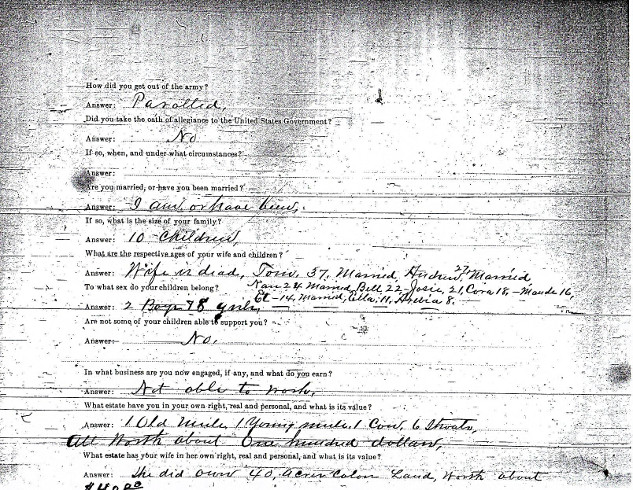 How did you get out of the army?
Answer: Parolled,
Did you take the oath of allegiance to the United States Government?
Answer: No
If so, when, and under what circumstances?
Answer:
Are you married, or have you been married?
Answer: I am, or have been.
If so, what is the size of your family?
Answer: 10 Children,
What are the respective ages of your wife and children?
Answer: Wife is dead, Tom, 37, Married, 27, Married
To what sex do your children belong? Nan 24 Married, Bell 22, Josie, 21, Cora 18, - Maude 16,
14, Married, Ella, 11, 8.
Answer: 2 Boys 78 girls,
Are not some of your children able to support you?
Answer: No,
In what business are you now engaged, if any, and what do you earn?
Answer: Not able to work,
What estate have you in your own right, real and personal, and what is its value?
Answer: 1 Old Mule, 1 Young mule, 1 Cow, 6 Shoats,
All Worth about One hundred dollars,
What estate has your wife in her own right, real and personal, and what is its value?
Answer: She did own 40, Acres Land, Worth about